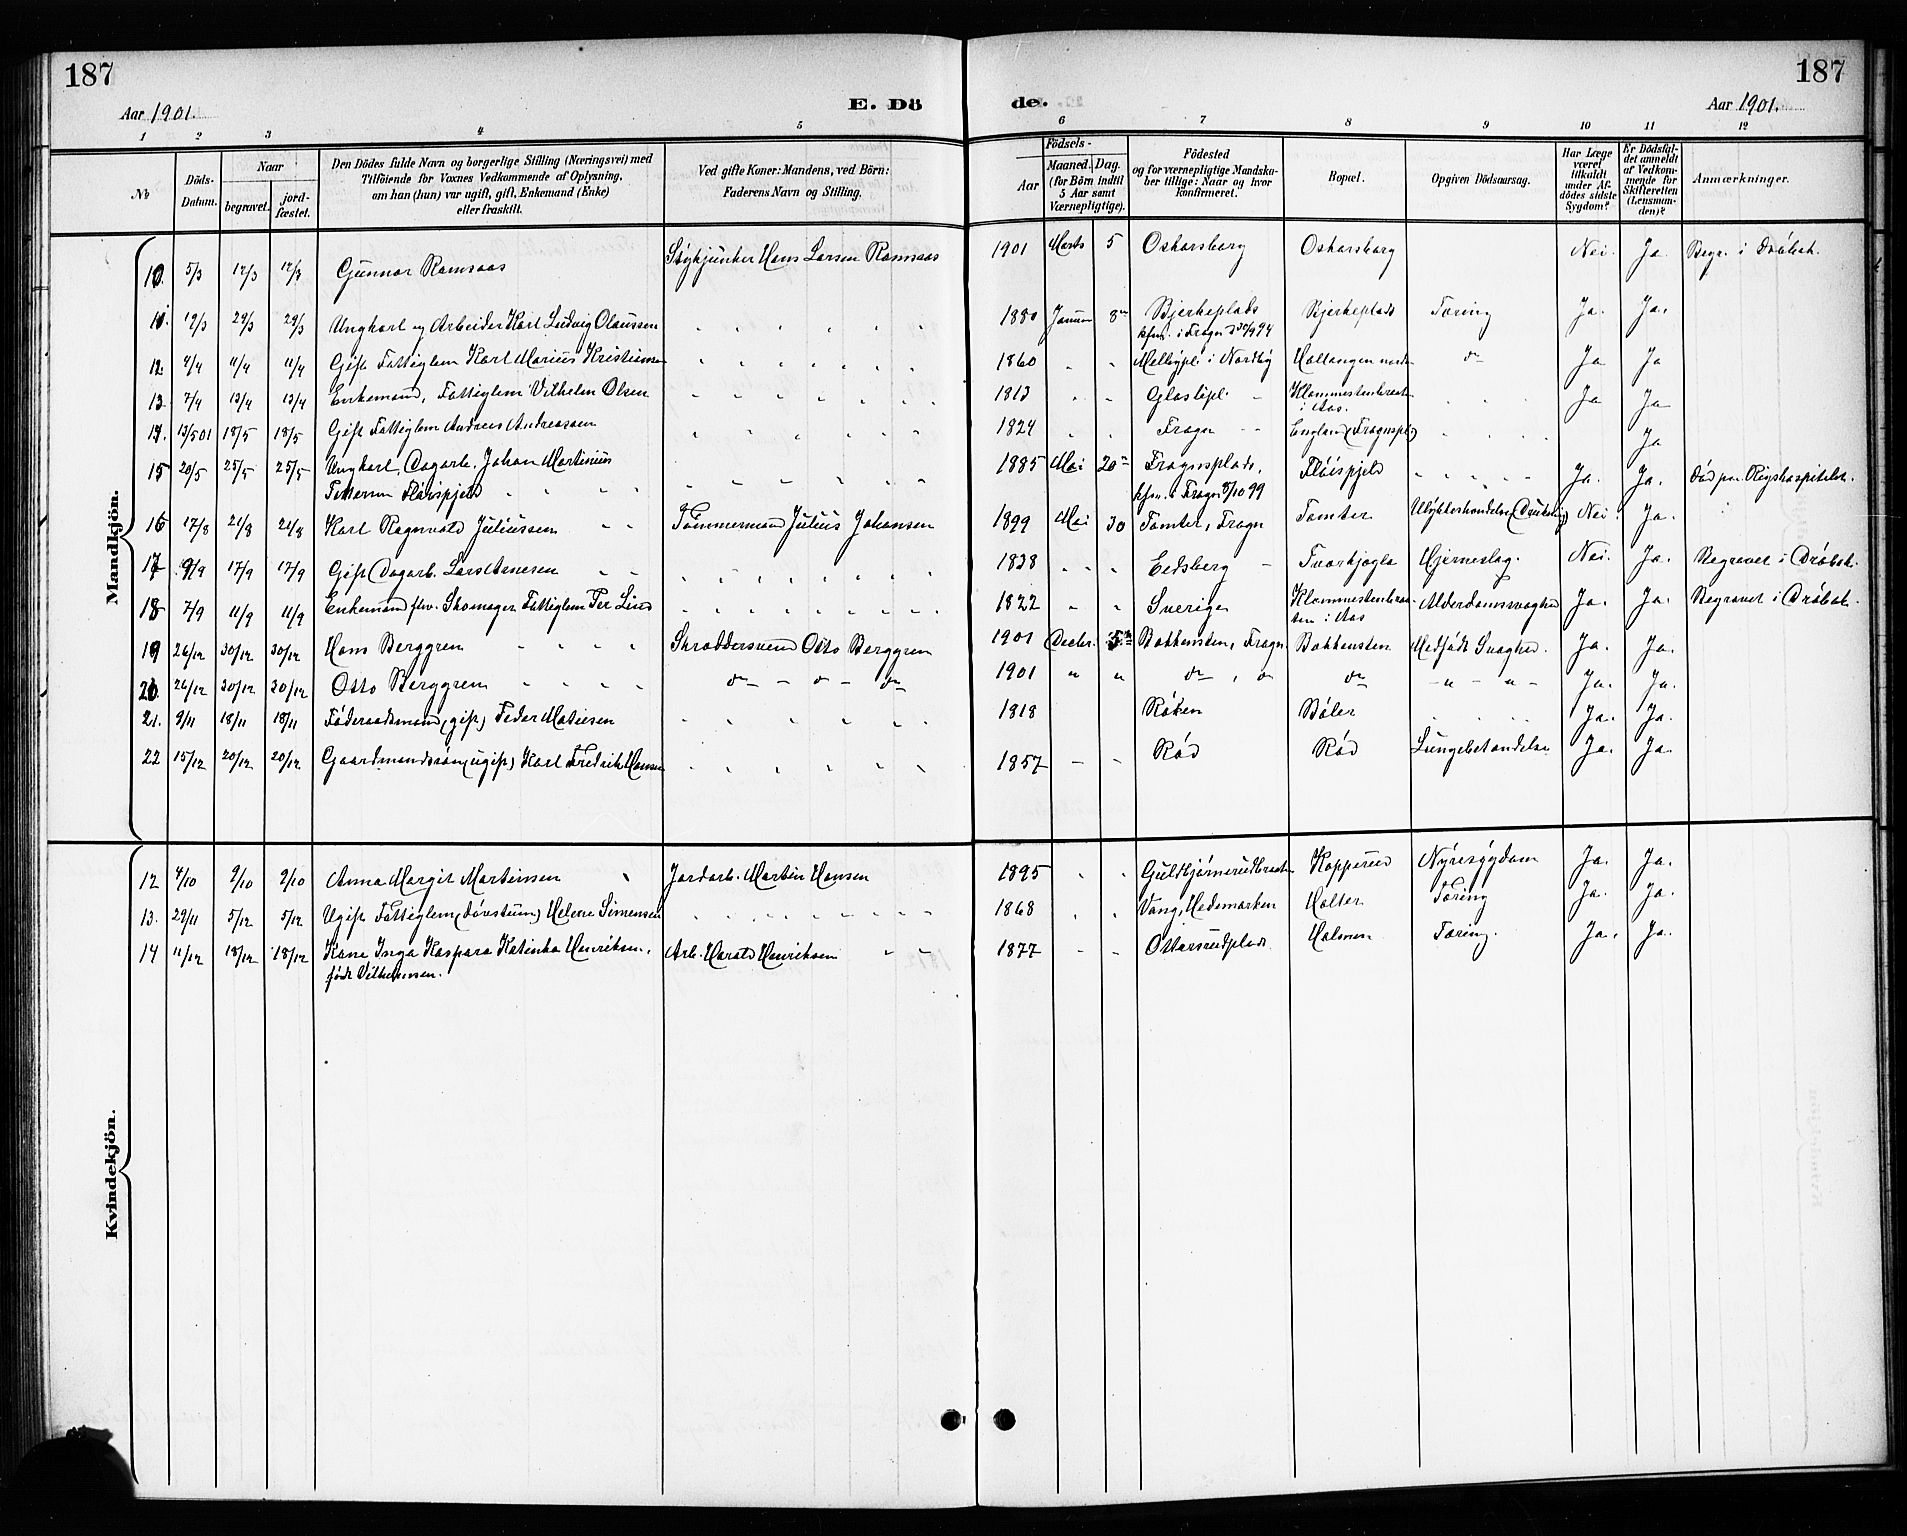 187 187
Aar 1901. E. Dö de. Aar 1901.
1 2 3 4 5 6 7 8 9 10 11 12
No
Döds-Datum.
Naar
begravet.
jord-fæstet.
Den Dödes fulde Navn og borgerlige Stilling (Næringsvei) med
Tilföiende for Voxnes Vedkommende af Oplysning,
om han (hun) var ugift, gift, Enkemand (Enke)
eller fraskilt.
Ved gifte Koner: Mandens, ved Börn:
Faderens Navn og Stilling.
Födsels-
Aar
Maaned. Dag.
(for Börn indtil
5 Aar samt
Værnepligtige).
Födested
og for værnepligtige Mandska-
ber tillige: Naar og hvor
konfirmeret.
Bopæl.
Opgiven Dödsaarsag.
Har Læge
været
tilkaldt
under Af-
dödes sidste
Sygdom?
Er Dödsfal-
det anmeldt
af Vedkom-
mende for
Skifteretten
(Lensman-
den)?
Anmærkninger.
Mandkjön.
10. 5/3 12/3 12/3 Gunnar Ramsaas Hans Larsen Ramsaas 1901 Marts 5 Oskarsborg Oskarsborg Nei. Ja. Begr. i Dröbak.
11. 19/3 29/3 29/3 Ungkarl og Arbeider Karl Ludvig Olaussen 1880 Januar 8de Bjerkeplads Bjerkeplads Tæring Ja. Ja.
kfm. i Frogn
12. 4/4 11/4 11/4 Gift Fattiglem Karl Marius Kristiansen 1860 i Nordby do Ja Ja
13. 7/4 13/4 13/4 Enkemand, Fattiglem Vilhelm Olsen 1813 Ja Ja
i Aas.
14. 13/5 01 18/5 18/5 Gift Fattiglem Andreas Andreassen 1824 Frogn England (Frognspl.) Ja
15 20/5 25/5 25/5 Ungkarl, Dagarb. Johan Martinius 1885 Mai 20de Frognsplads, Flöispjeld Ja. Ja. Död paa Rigshospitalet.
Flöispjeld kfm. i Frogn 8/10 99
16 17/8 21/8 21/8 Karl Ragnvald Juliussen Tömmermand Julius Johansen 1899 Mai 30 Tomter, Frogn Tomter Nei. Ja.
17 9/9 17/9 17/9 Gift Dagarb. Lars Arnesen 1838 Eidsberg Hjerneslag. Nei. Ja. Begravet i Dröbak.
18 7/9 11/9 11/9 Enkemand fhv. Skomager Fattiglem Per Lind 1822 Sverige Alderdomssvaghed Ja. Ja. Begravet i Dröbak.
i Aas
19 26/12 30/12 30/12 Hans Berggren Skræddersvend Otto Berggren 1901 Decbr. Bakkensten, Frogn Bakkensten Medfödt Svaghed. Ja. Ja.
20 26/12 30/12 30/12 Otto Berggren do - do - do 1901 " " do, do do - " - " - Ja. Ja.
21. 9/11 18/11 18/11 Föderaadsmand (gift) Peder Matisen 1818 Röken Böler Ja. Ja.
22 15/12 20/12 20/12 Gaardmandssön (ugift) Karl Fredrik Hansen 1857 Röd Röd Lungebetændelse Ja. Ja.
Kvindekjön.
12 4/10 9/10 9/10 Anna Margit Martinsen Jordarb. Martin Hansen 1895 Guldbjörnerudbraaten Kopperud Nyresygdom Ja. Ja.
13. 29/11 5/12 5/12 Ugift Fattiglem (dövstum) Helene Simensen 1868 Vang, Hedemarken Holter Tæring Ja. Ja.
14 11/12 18/12 18/12 Kone Inga Kaspara Katinka Henriksen, Arb. Harald Henriksen 1877 Ottarsrudplads Holmen Tæring. Ja. Ja.
födt Vilhelmsen.